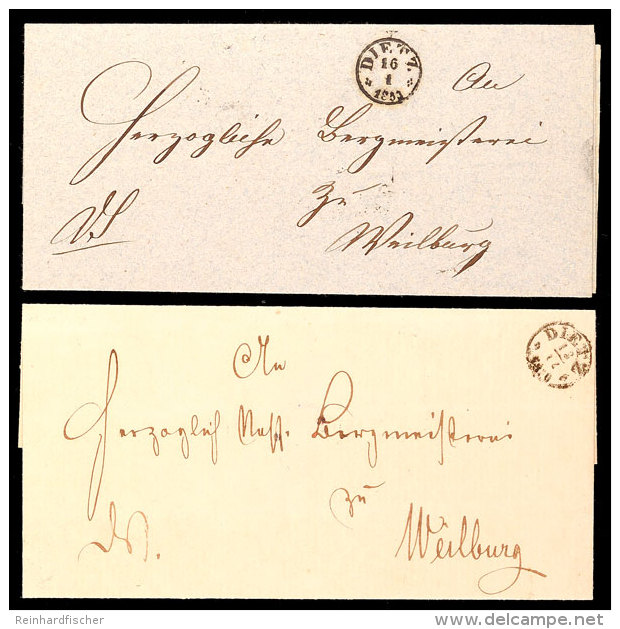 DIETZ.
16
1
An
Herzogliche Bergmeisterei
zu
Weilburg
DS
DIETZ
12
An
Herzoglich Nass. Bergmeisterei
zu
Weilburg
DS.
Reinhardfischer
delcampe.net